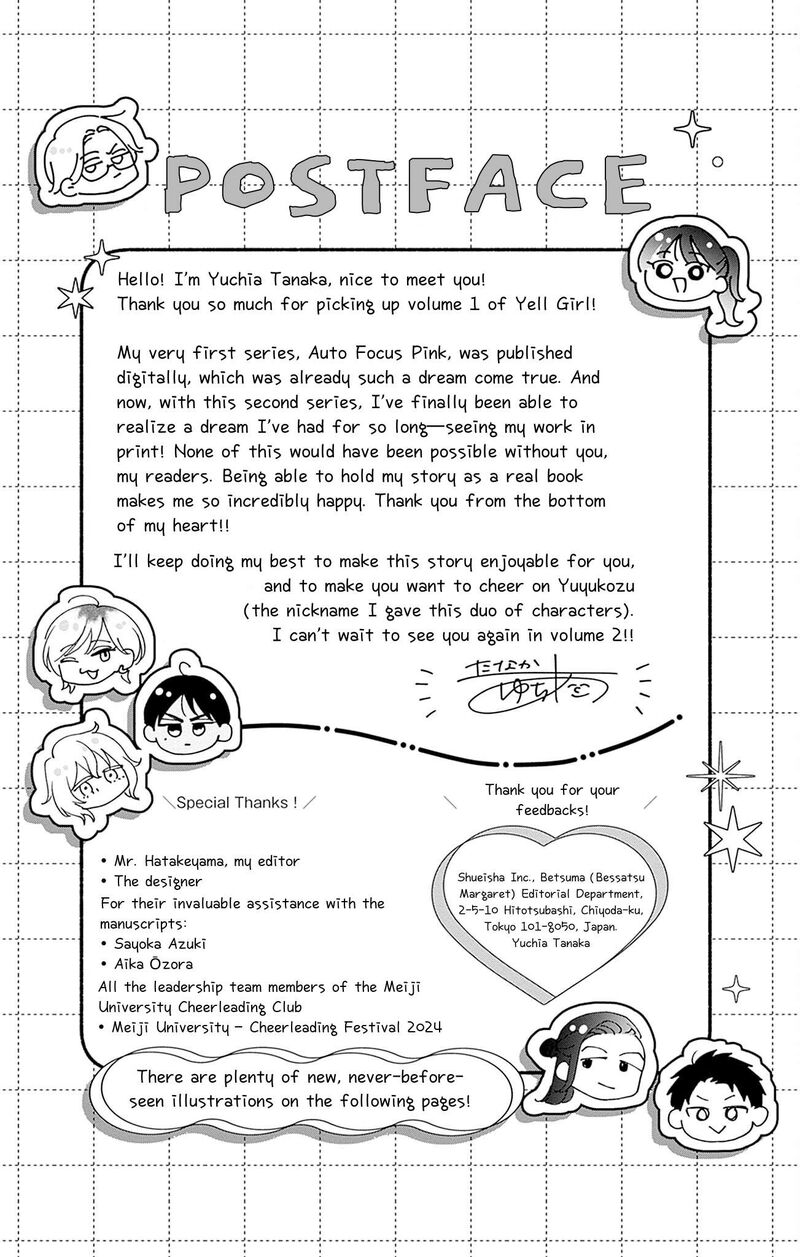 POSTFACE
Hello! I'm Yuchia Tanaka, nice to meet you!
Thank you so much for picking up volume 1 of Yell Girl!
My very first series, Auto Focus Pink, was published
digitally, which was already such a dream come true. And
now, with this second series, I've finally been able to
realize a dream I've had for so long—seeing my work in
print! None of this would have been possible without you,
my readers. Being able to hold my story as a real book
makes me so incredibly happy. Thank you from the bottom
of my heart!!
I'll keep doing my best to make this story enjoyable for you,
and to make you want to cheer on Yuyukozu
(the nickname I gave this duo of characters).
I can't wait to see you again in volume 2!!
たなか
Special Thanks !
• Mr. Hatakeyama, my editor
• The designer
For their invaluable assistance with the
manuscripts:
• Sayoka Azuki
• Aika Ōzora
All the leadership team members of the Meiji
University Cheerleading Club
• Meiji University – Cheerleading Festival 2024
Thank you for your
feedbacks!
Shueisha Inc., Betsuma (Bessatsu
Margaret) Editorial Department,
2-5-10 Hitotsubashi, Chiyoda-ku,
Tokyo 101-8050, Japan.
Yuchia Tanaka
There are plenty of new, never-before-
seen illustrations on the following pages!